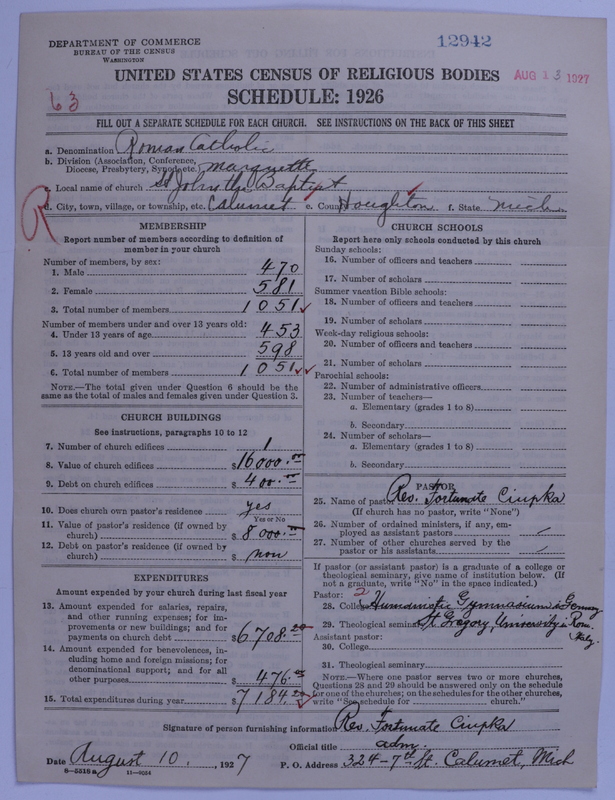 DEPARTMENT OF COMMERCE
BUREAU OF THE CENSUS
WASHINGTON
12942
UNITED STATES CENSUS OF RELIGIOUS BODIES
AUG 13 1927
63
SCHEDULE: 1926
FILL OUT A SEPARATE SCHEDULE FOR EACH CHURCH. SEE INSTRUCTIONS ON THE BACK OF THIS SHEET
a. Denomination Roman Catholic
b. Division (Association, Conference, Diocese, Presbytery, Synod, etc.) Marquette
c. Local name of church St Johns the Baptist
d. City, town, village, or township, etc. Calumet e. County Houghton f. State Mich
MEMBERSHIP
Report number of members according to definition of
member in your church
Number of members, by sex:
1. Male 470
2. Female 581
3. Total number of members 1051
Number of members under and over 13 years old:
4. Under 13 years of age 453
5. 13 years old and over 598
6. Total number of members 1051
NOTE.—The total given under Question 6 should be the
same as the total of males and females given under Question 3.
CHURCH BUILDINGS
See instructions, paragraphs 10 to 12
7. Number of church edifices 1
8. Value of church edifices $16000.00
9. Debt on church edifices $400.00
10. Does church own pastor's residence yes
Yes or No
11. Value of pastor's residence (if owned by
church) $8000.00
12. Debt on pastor's residence (if owned by
church) $non
EXPENDITURES
Amount expended by your church during last fiscal year
13. Amount expended for salaries, repairs,
and other running expenses; for im-
provements or new buildings; and for
payments on church debt $6708.20
14. Amount expended for benevolences, in-
cluding home and foreign missions; for
denominational support; and for all
other purposes $476.00
15. Total expenditures during year $7184.20
CHURCH SCHOOLS
Report here only schools conducted by this church
Sunday schools:
16. Number of officers and teachers
17. Number of scholars
Summer vacation Bible schools:
18. Number of officers and teachers
19. Number of scholars
Week-day religious schools:
20. Number of officers and teachers
21. Number of scholars
Parochial schools:
22. Number of administrative officers
23. Number of teachers—
a. Elementary (grades 1 to 8)
b. Secondary
24. Number of scholars—
a. Elementary (grades 1 to 8)
b. Secondary
PASTOR
25. Name of pastor Rev. Fortunate Ciupka
(If church has no pastor, write "None")
26. Number of ordained ministers, if any, em-
ployed as assistant pastors
27. Number of other churches served by the
pastor or his assistants
If pastor (or assistant pastor) is a graduate of a college or
theological seminary, give name of institution below. (If
not a graduate, write "No" in the space indicated.)
Pastor: 2
28. College Humanistic Gymnasium in Germany
29. Theological seminary St Gregory, University in Rome Italy.
Assistant pastor:
30. College
31. Theological seminary
NOTE.—Where one pastor serves two or more churches,
Questions 28 and 29 should be answered only on the schedule
for one of the churches; on the schedules for the other churches,
write "See schedule for church."
Signature of person furnishing information Rev. Fortunate Ciupka
Official title adm.
Date August 10, 1927 P. O. Address 324-7th St. Calumet, Mich
8-5318a 11-9034